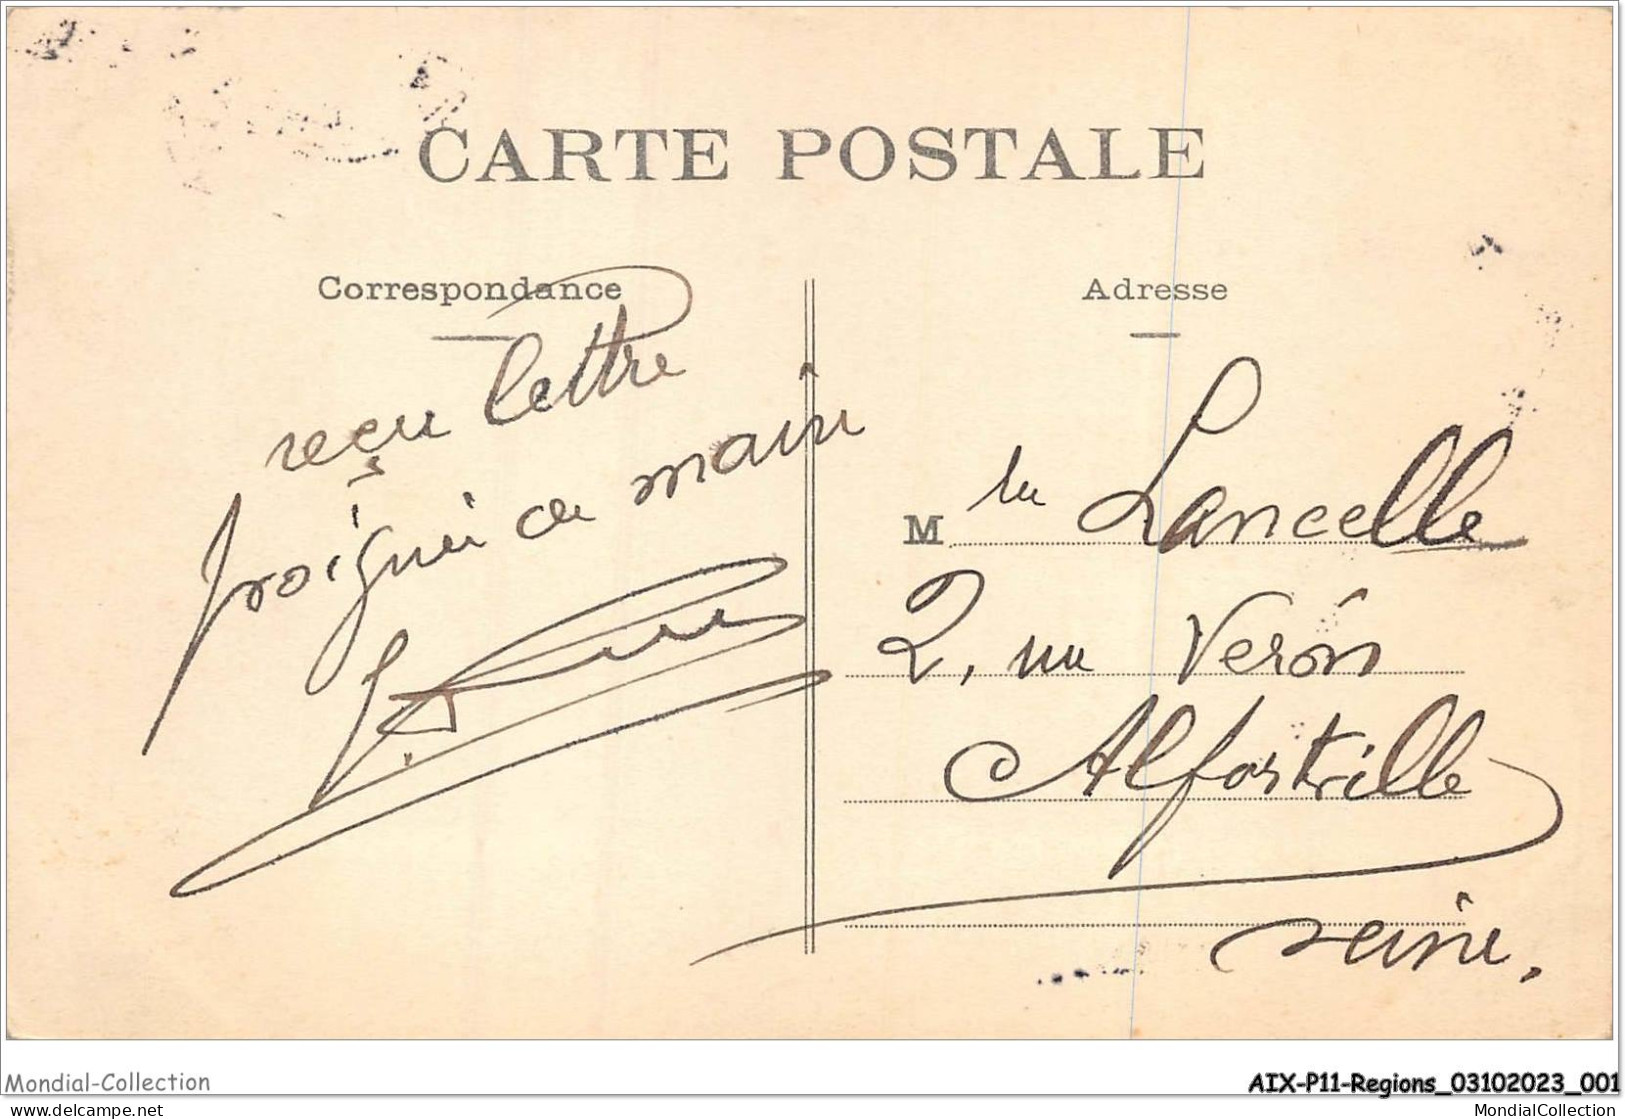 CARTE POSTALE
Correspondance
reçu lettre
poignée de main
Adresse
M lle Lancelle
2, rue Véron
Alfortville
Seine.
Mondial-Collection
AIX-P11-Regions_03102023_001
delcampe.net
MondialCollection